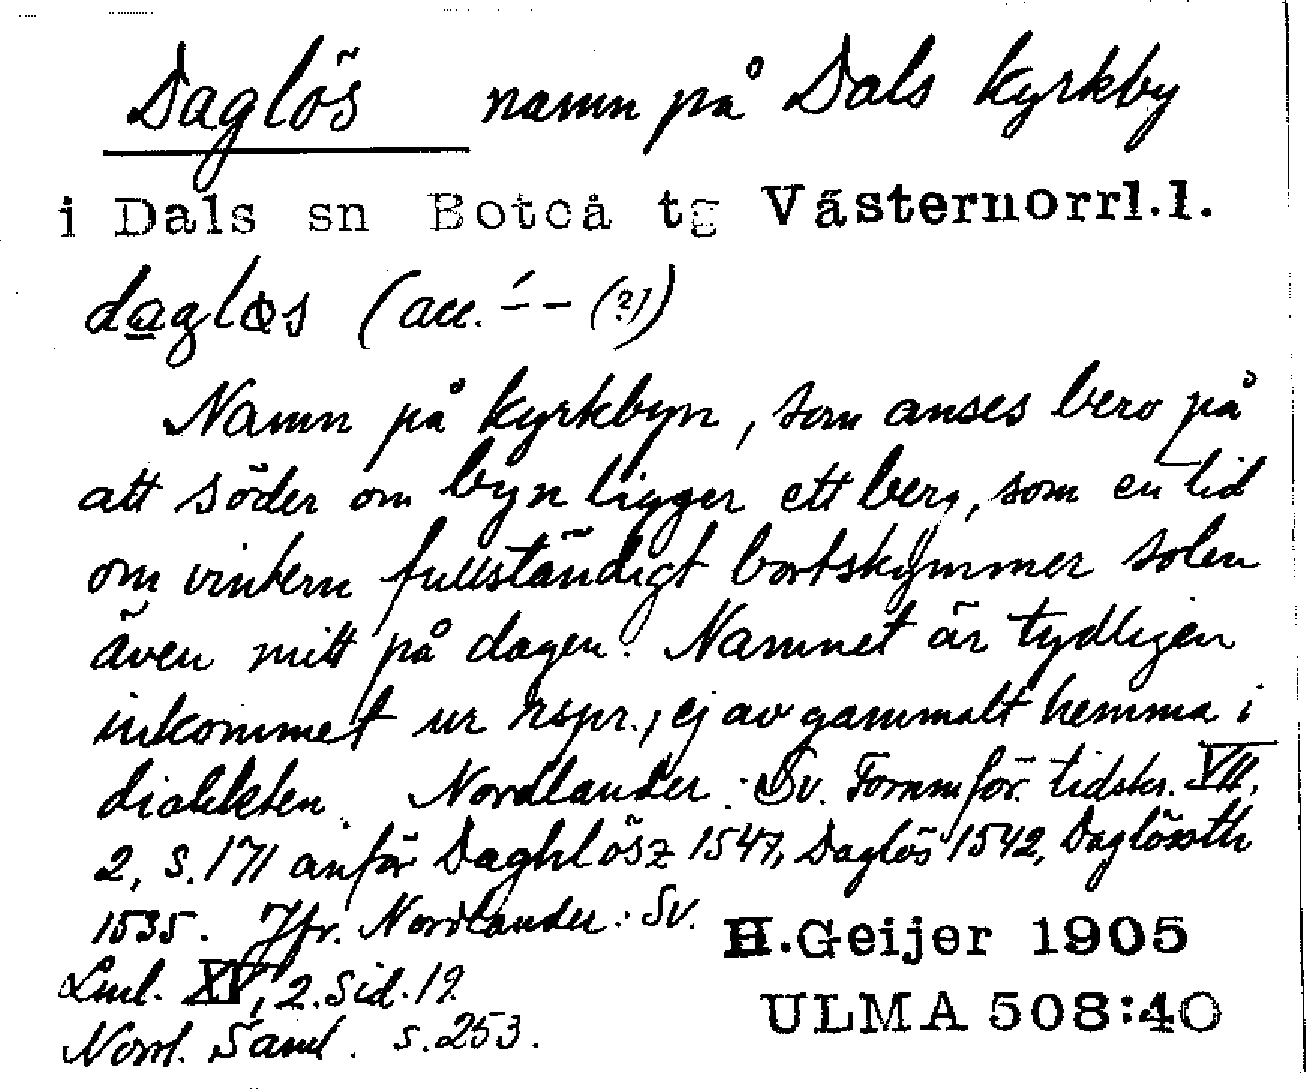 Daglös namn på Dals kyrkby
i Dals sn Boteå tg Västernorrl.l.
daglɵs (acc. ´– – (?))
Namn på kyrkbyn, som anses bero på
att söder om byn ligger ett berg, som en tid
om vintern fullständigt bortskymmer solen
även mitt på dagen. Namnet är tydligen
inkommet ur rspr., ej av gammalt hemma i
dialekten. Nordlander: Sv. Fornmför. tidskr. VII,
2, s. 171 anför Daghlösz 1547, Daglös 1542, Daglössth
1535. Jfr. Nordlander: Sv.
Lml. XV, 2. Sid. 19
Norrl. Saml. s. 253.
H.Geijer 1905
ULMA 508:40